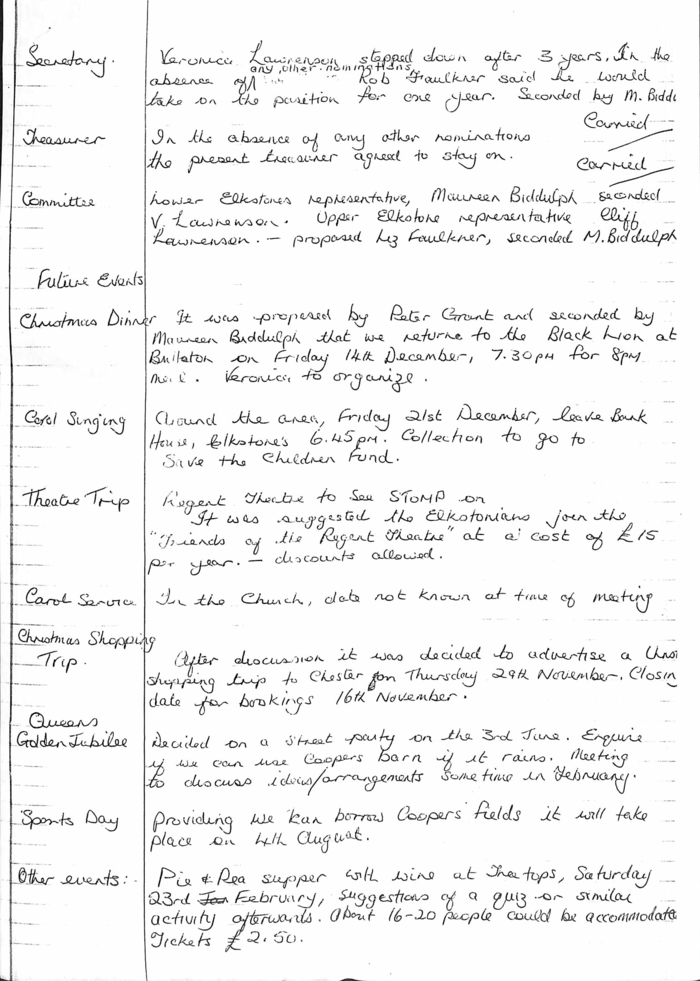 Secretary. Veronica Lawrenson stepped down after 3 years. In the
any other nominations
absence of Rob Faulkner said he would
take on the position for one year. Seconded by M. Biddu
Carried
Treasurer In the absence of any other nominations
the present treasurer agreed to stay on.
Carried
Committee Lower Elkstones representative, Maureen Biddulph seconded
V. Lawrenson. Upper Elkstone representative Cliff
Lawrenson. – proposed Liz Faulkner, seconded M. Biddulph
Future Events
Christmas Dinner It was proposed by Peter Grant and seconded by
Maureen Biddulph that we returne to the Black Lion at
Butlaton on Friday 14th December, 7.30pm for 8pm
meal. Veronica to organize.
Carol Singing Around the area, Friday 21st December, leave Bank
House, Elkstone's 6.45pm. Collection to go to
Save the Children Fund.
Theatre Trip Regent Theatre to see STOMP on
It was suggested the Elkstonians join the
"Friends of the Regent Theatre" at a cost of £15
per year. – discounts allowed.
Carol Service In the Church, date not known at time of meeting
Christmas Shopping
Trip. After discussion it was decided to advertise a
shopping trip to Chester on Thursday 29th November. Closin
date for bookings 16th November.
Queens
Golden Jubilee Decided on a street party on the 3rd June. Enquire
if we can use Coopers barn if it rains. Meeting
to discuss ideas/arrangements sometime in February.
Sports Day Providing we can borrow Coopers' fields it will take
place on 4th August.
Other events: Pie & Pea supper with wine at Treetops, Saturday
23rd Jan February, suggestions of a quiz or similar
activity afterwards. About 16-20 people could be accommodate
Tickets £2.50.